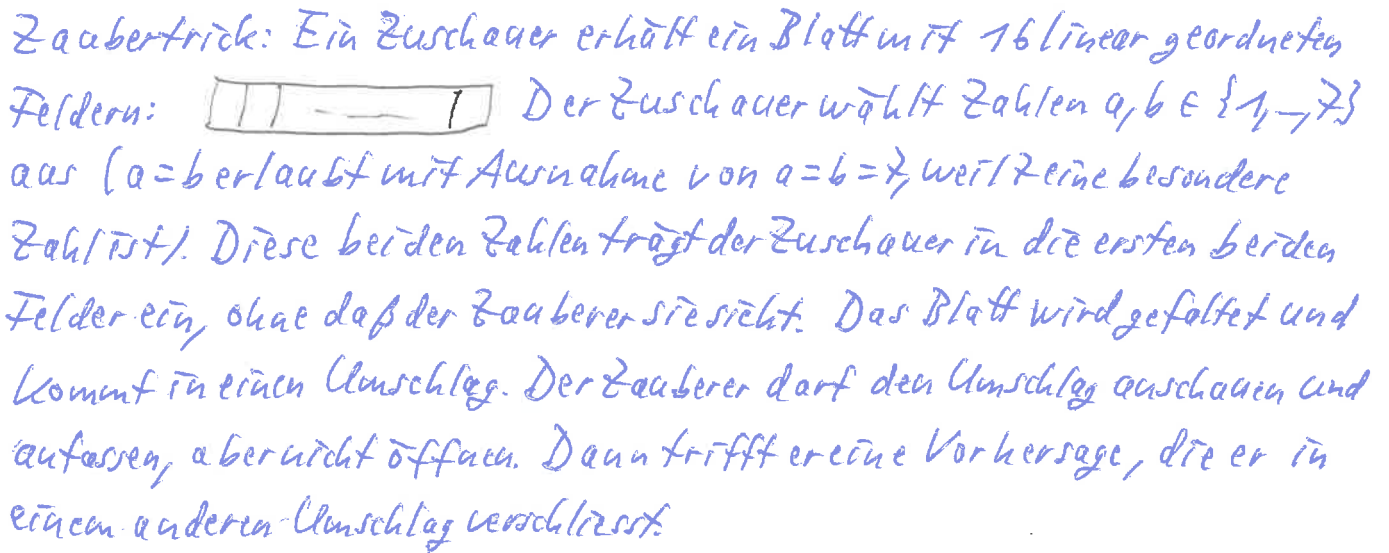 Zaubertrick: Ein Zuschauer erhält ein Blatt mit 16 linear geordneten
Feldern: Der Zuschauer wählt Zahlen a, b ∈ {1, –, 7}
aus (a=b erlaubt mit Ausnahme von a=b=7, weil 7 eine besondere
Zahl ist). Diese beiden Zahlen trägt der Zuschauer in die ersten beiden
Felder ein, ohne daß der Zauberer sie sieht. Das Blatt wird gefaltet und
kommt in einen Umschlag. Der Zauberer darf den Umschlag anschauen und
anfassen, aber nicht öffnen. Dann trifft er eine Vorhersage, die er in
einem anderen Umschlag verschliesst.